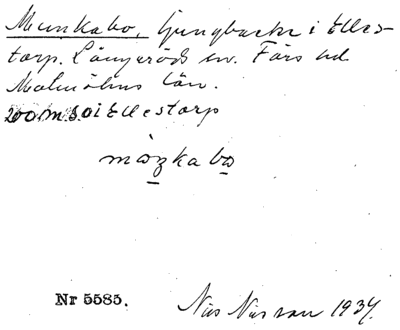 Munkabo, ljungbacke i Elles-
torp. Långaröds sn. Färs hd
Malmöhus län.
200 m SO i Ellestorp
Nr 5585. Nils Nilsson 1934.